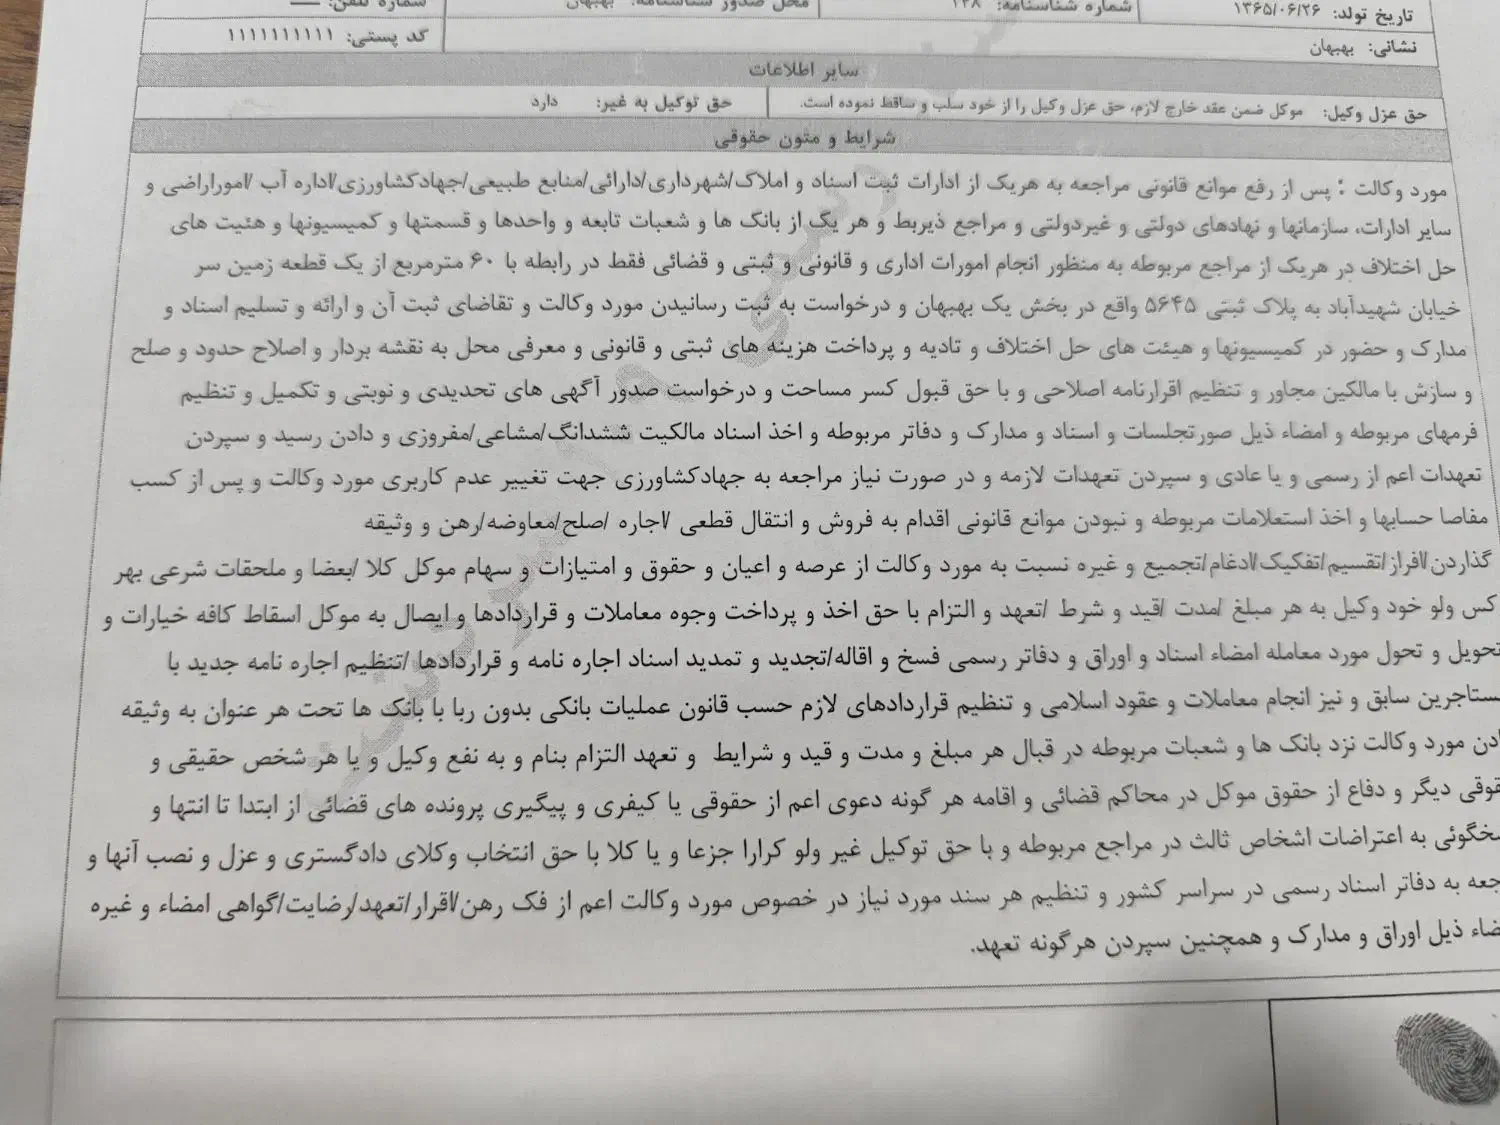 تاریخ تولد: ۱۳۶۵/۰۶/۲۶ شماره شناسنامه: ۱۲۸ محل صدور شناسنامه: بهبهان شماره تلفن:
نشانی: بهبهان کد پستی: ۱۱۱۱۱۱۱۱۱۱
سایر اطلاعات
حق عزل وکیل: موکل ضمن عقد خارج لازم، حق عزل وکیل را از خود سلب و ساقط نموده است. حق توکیل به غیر: دارد
شرایط و متون حقوقی
مورد وکالت : پس از رفع موانع قانونی مراجعه به هریک از ادارات ثبت اسناد و املاک/شهرداری/دارائی/منابع طبیعی/جهادکشاورزی/اداره آب /اموراراضی و
سایر ادارات، سازمانها و نهادهای دولتی و غیردولتی و مراجع ذیربط و هر یک از بانک ها و شعبات تابعه و واحدها و قسمتها و کمیسیونها و هئیت های
حل اختلاف در هریک از مراجع مربوطه به منظور انجام امورات اداری و قانونی و ثبتی و قضائی فقط در رابطه با ۶۰ مترمربع از یک قطعه زمین سر
خیابان شهیدآباد به پلاک ثبتی ۵۶۴۵ واقع در بخش یک بهبهان و درخواست به ثبت رسانیدن مورد وکالت و تقاضای ثبت آن و ارائه و تسلیم اسناد و
مدارک و حضور در کمیسیونها و هیئت های حل اختلاف و تادیه و پرداخت هزینه های ثبتی و قانونی و معرفی محل به نقشه بردار و اصلاح حدود و صلح
و سازش با مالکین مجاور و تنظیم اقرارنامه اصلاحی و با حق قبول کسر مساحت و درخواست صدور آگهی های تحدیدی و نوبتی و تکمیل و تنظیم
فرمهای مربوطه و امضاء ذیل صورتجلسات و اسناد و مدارک و دفاتر مربوطه و اخذ اسناد مالکیت ششدانگ/مشاعی/مفروزی و دادن رسید و سپردن
تعهدات اعم از رسمی و یا عادی و سپردن تعهدات لازمه و در صورت نیاز مراجعه به جهادکشاورزی جهت تغییر عدم کاربری مورد وکالت و پس از کسب
مفاصا حسابها و اخذ استعلامات مربوطه و نبودن موانع قانونی اقدام به فروش و انتقال قطعی /اجاره /صلح/معاوضه/رهن و وثیقه
گذاردن/افراز/تقسیم/تفکیک/ادغام/تجمیع و غیره نسبت به مورد وکالت از عرصه و اعیان و حقوق و امتیازات و سهام موکل کلا /بعضا و ملحقات شرعی بهر
کس ولو خود وکیل به هر مبلغ /مدت /قید و شرط /تعهد و التزام با حق اخذ و پرداخت وجوه معاملات و قراردادها و ایصال به موکل اسقاط کافه خیارات و
تحویل و تحول مورد معامله امضاء اسناد و اوراق و دفاتر رسمی فسخ و اقاله/تجدید و تمدید اسناد اجاره نامه و قراردادها /تنظیم اجاره نامه جدید با
ستاجرین سابق و نیز انجام معاملات و عقود اسلامی و تنظیم قراردادهای لازم حسب قانون عملیات بانکی بدون ربا با بانک ها تحت هر عنوان به وثیقه
ادن مورد وکالت نزد بانک ها و شعبات مربوطه در قبال هر مبلغ و مدت و قید و شرایط و تعهد التزام بنام و به نفع وکیل و یا هر شخص حقیقی و
قوقی دیگر و دفاع از حقوق موکل در محاکم قضائی و اقامه هر گونه دعوی اعم از حقوقی یا کیفری و پیگیری پرونده های قضائی از ابتدا تا انتها و
سخگوئی به اعتراضات اشخاص ثالث در مراجع مربوطه و با حق توکیل غیر ولو کرارا جزعا و یا کلا با حق انتخاب وکلای دادگستری و عزل و نصب آنها و
جعه به دفاتر اسناد رسمی در سراسر کشور و تنظیم هر سند مورد نیاز در خصوص مورد وکالت اعم از فک رهن/اقرار/تعهد/رضایت/گواهی امضاء و غیره
ضاء ذیل اوراق و مدارک و همچنین سپردن هرگونه تعهد.